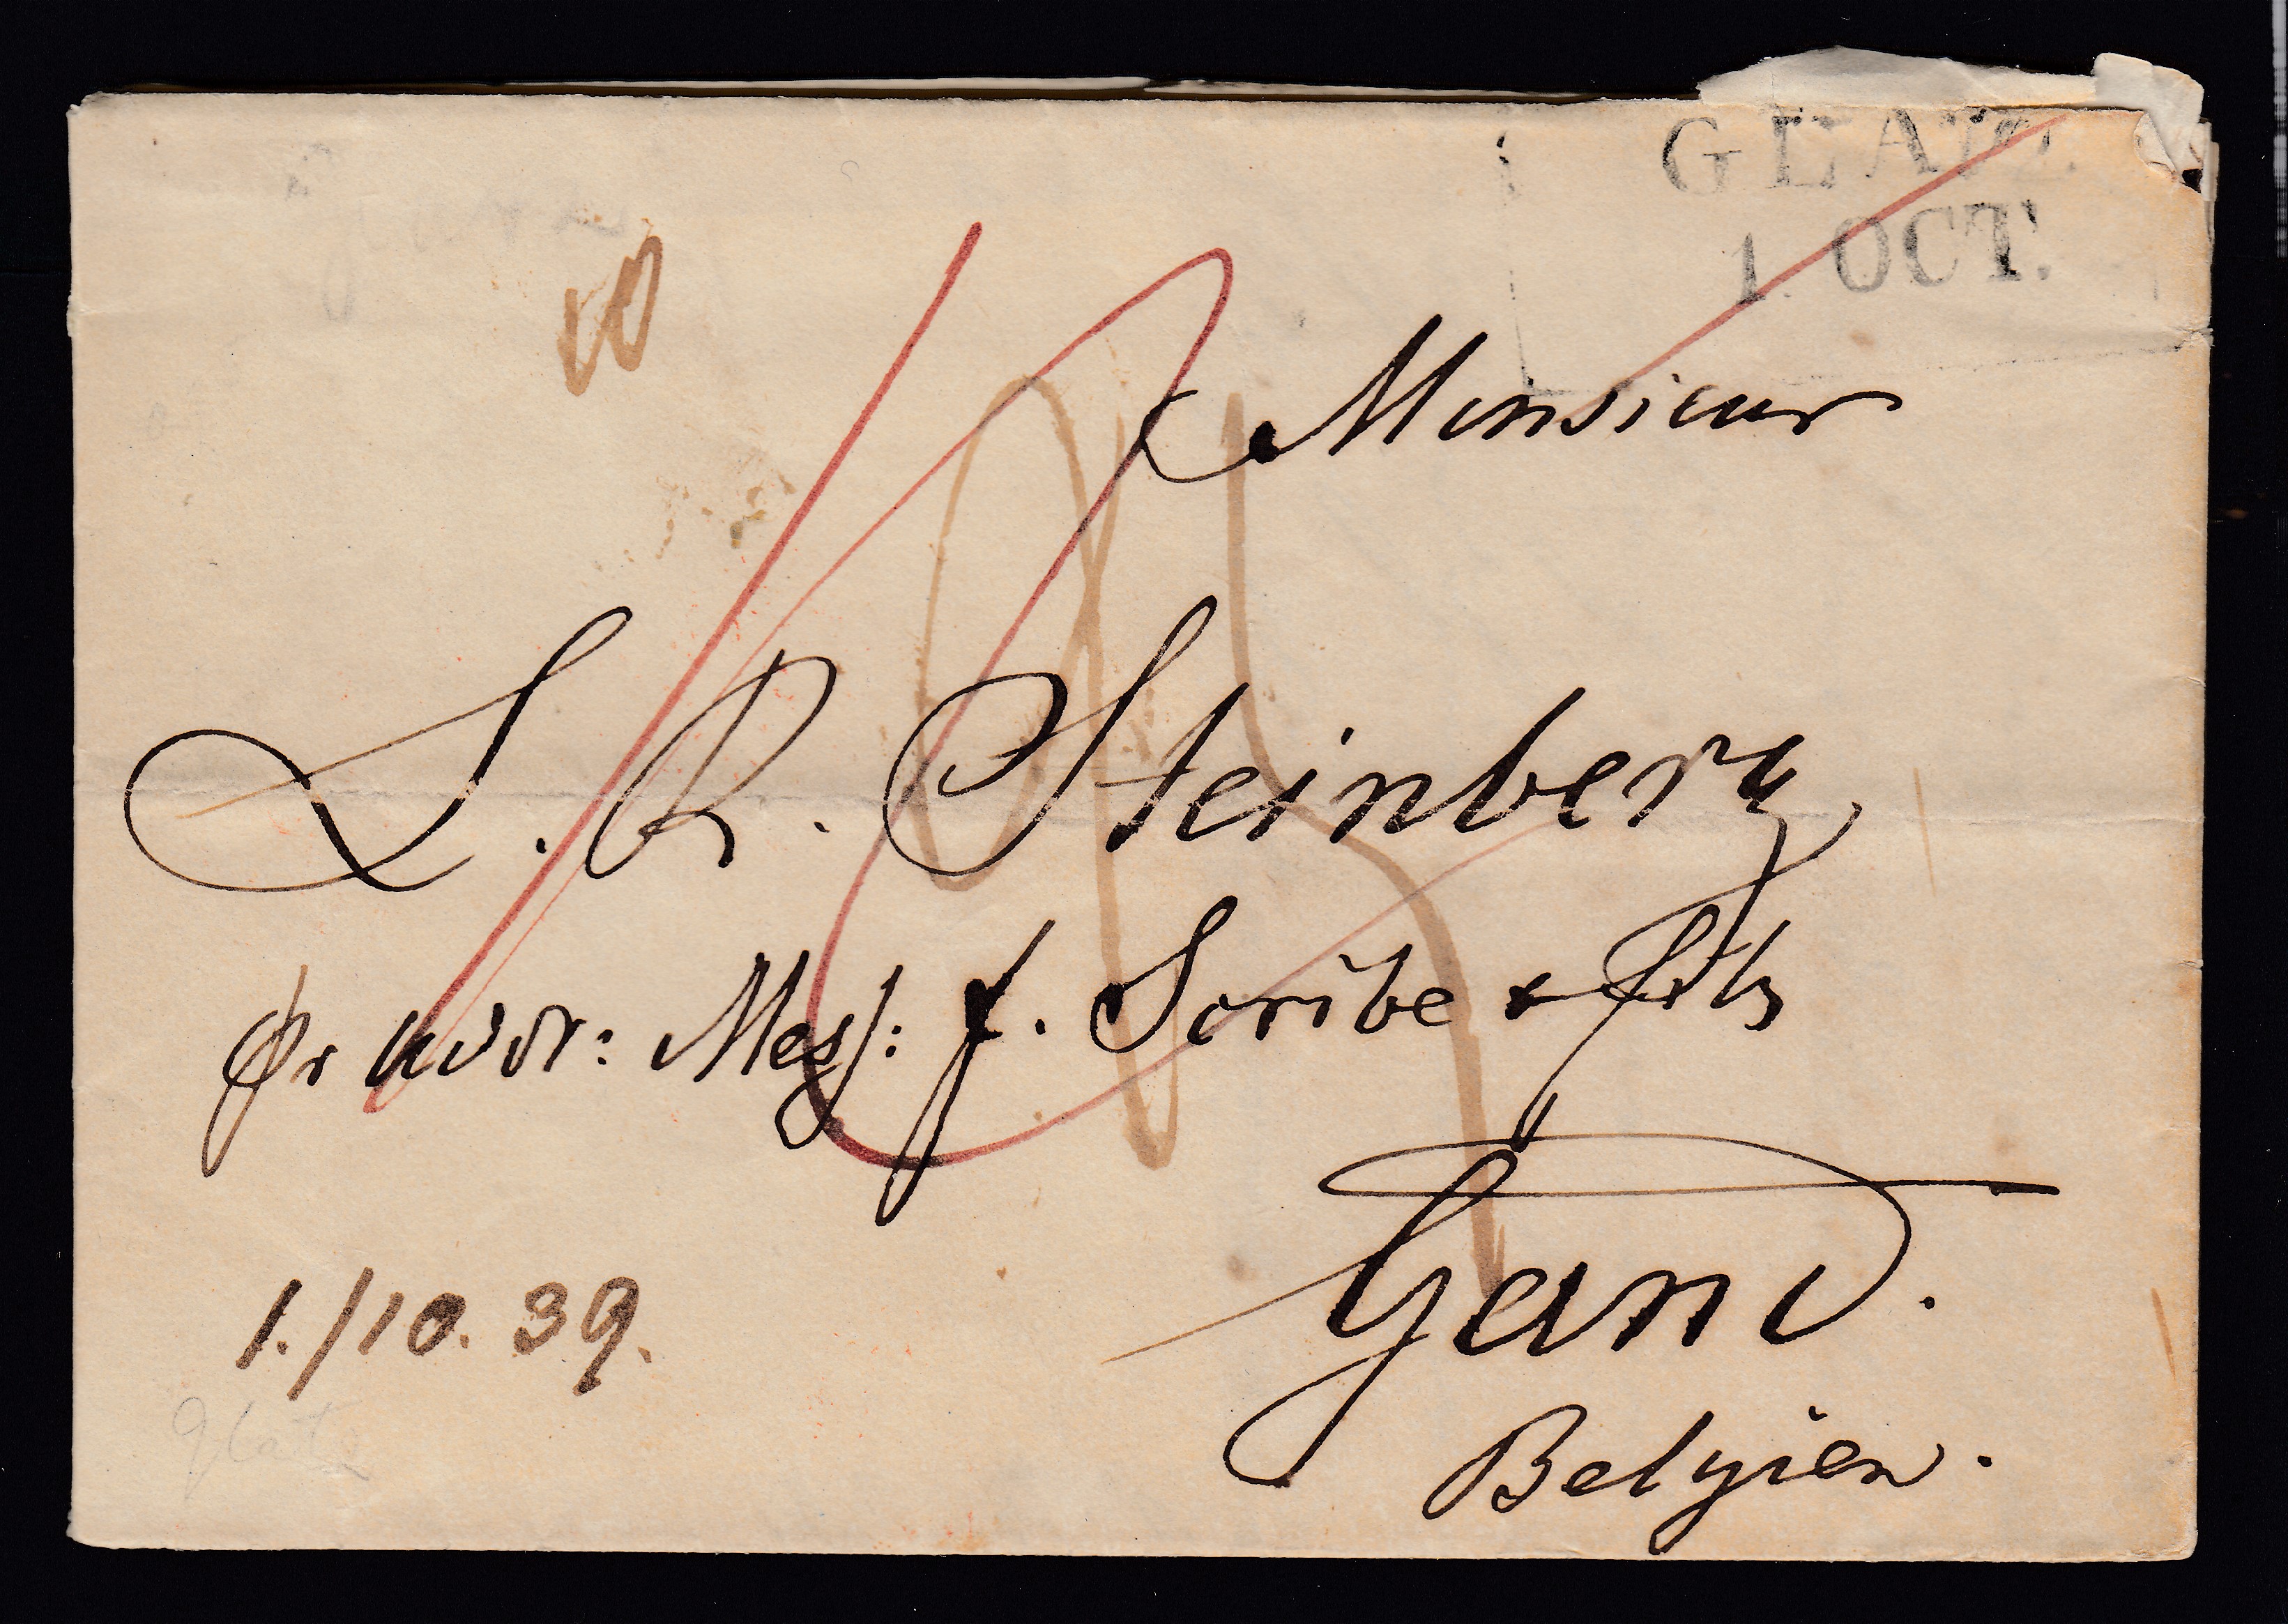 GLATZ.
1. OCT.
10
Monsieur
L. R. Steinberg
pr addr: Mess: f. Scribe & fils
Gand.
1./10. 39.
Glatz
Belgien.